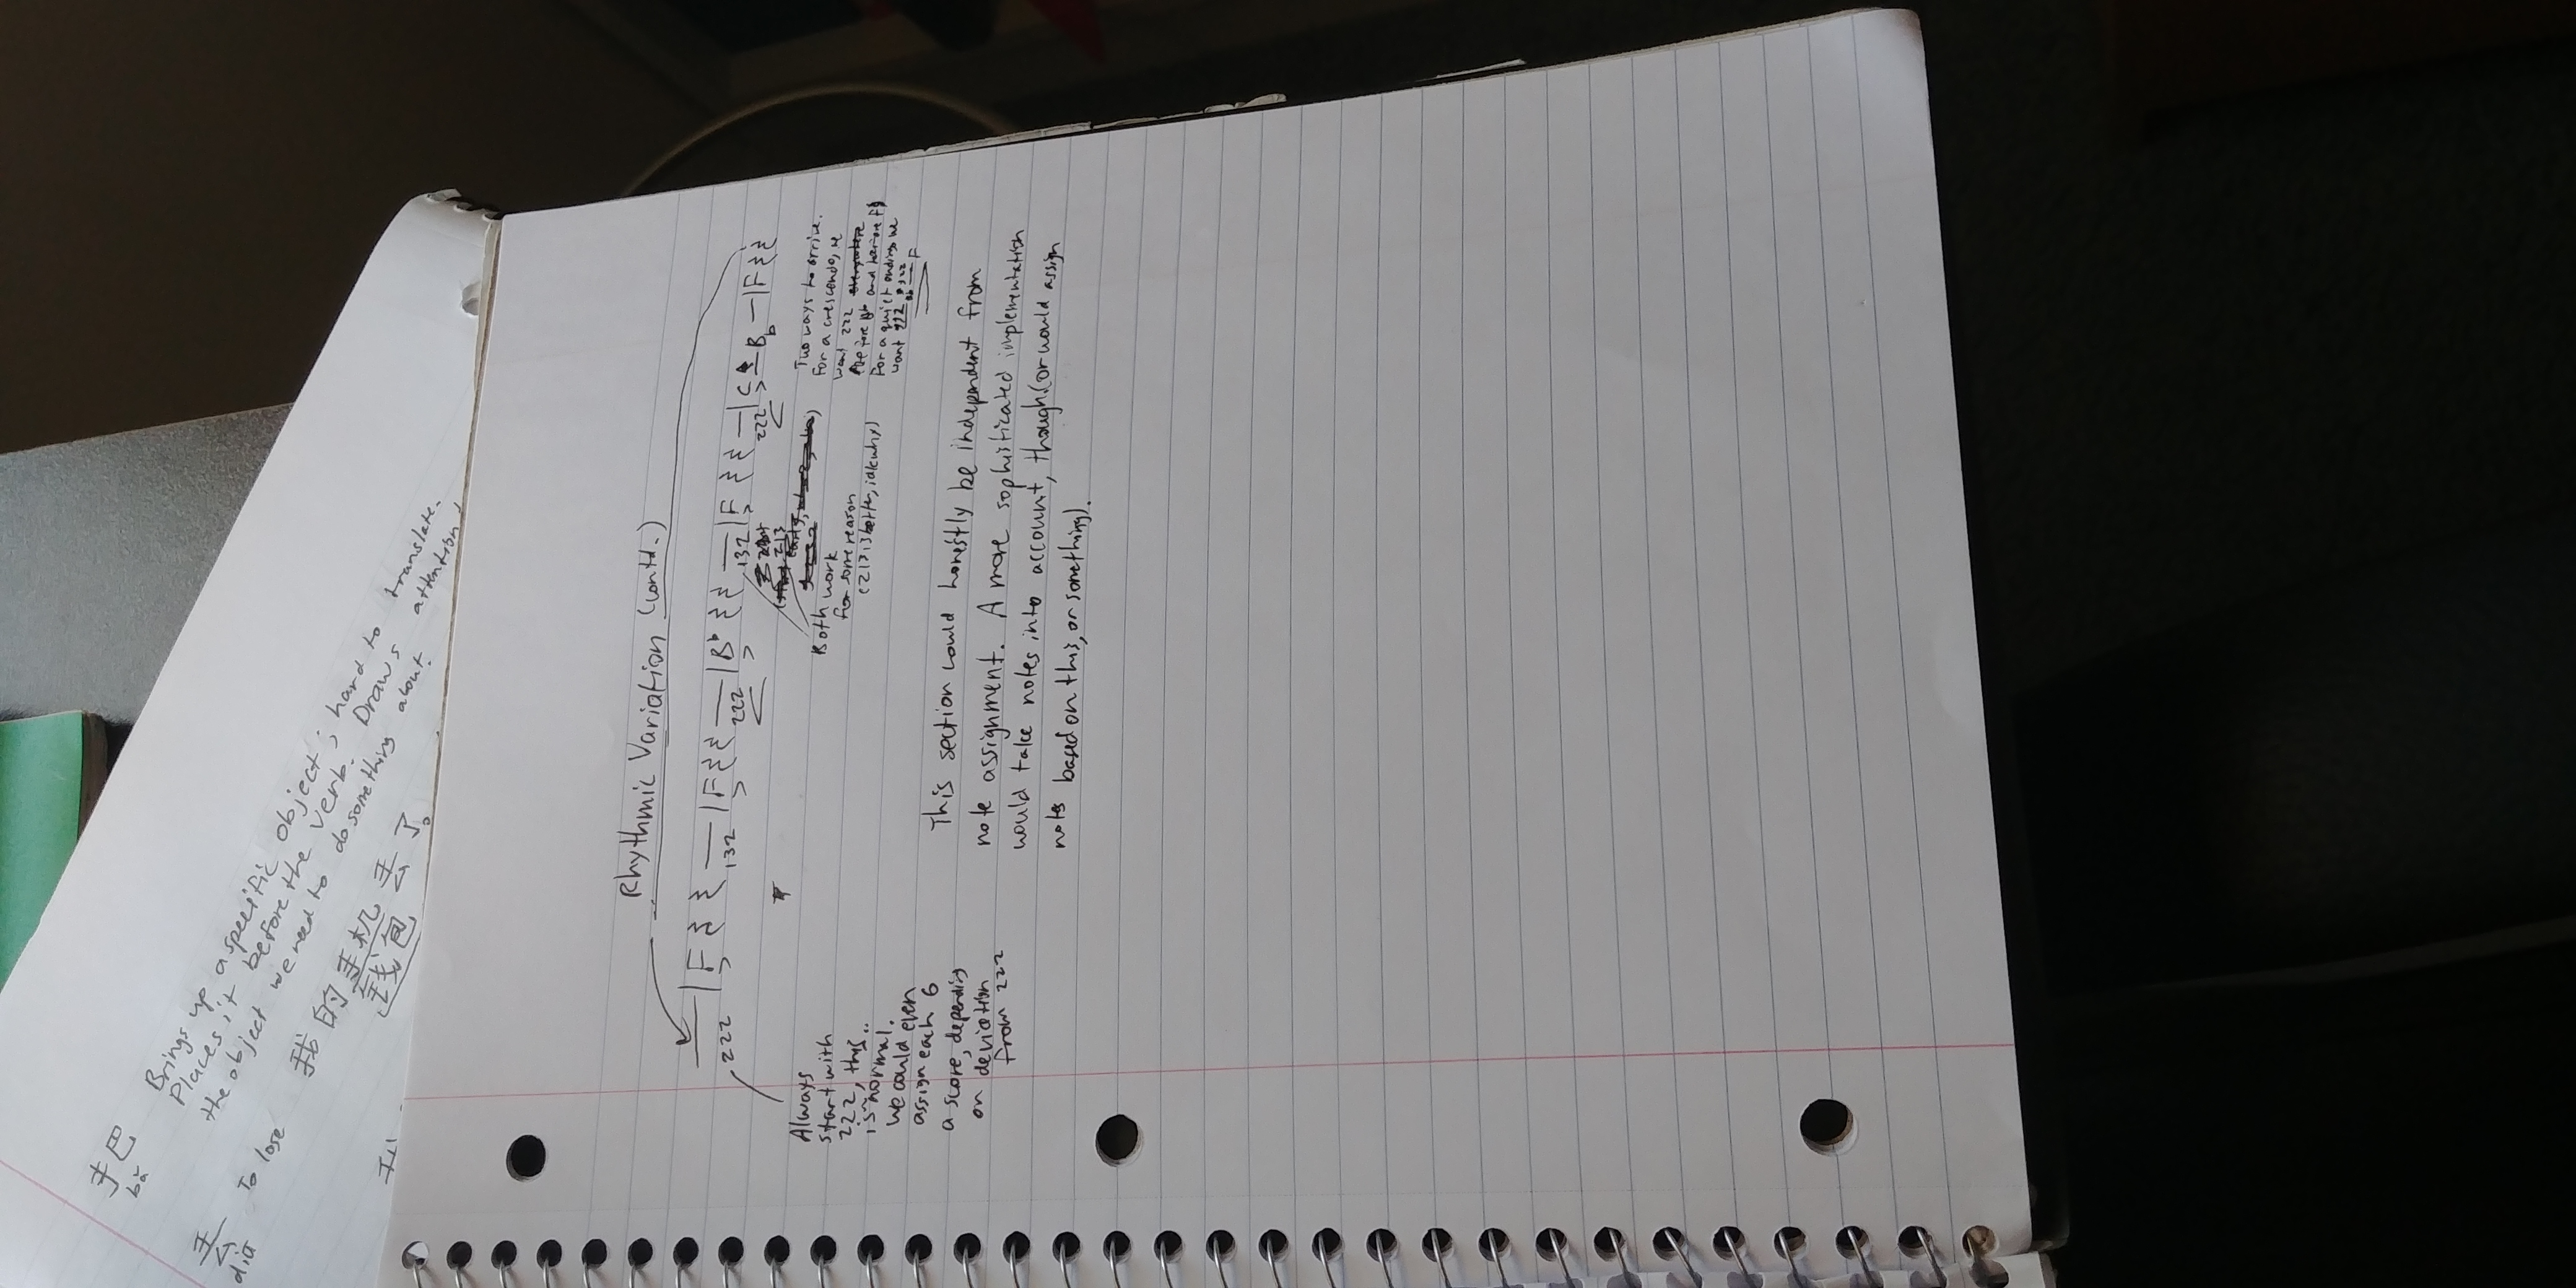 把
bǎ
Brings up a specific object; hard to translate.
Places it before the verb. Draws attention,
the object we need to do something about.
丢
diū
To lose
我的手机丢了。
钱包
我
Rhythmic Variation (contd.)
| F | F | B♭ | F | C B♭ | F
222 132 222 132 222
213
Always
start with
222, this
is normal.
we could even
assign each 6
a score, depending
on deviation
from 222
Both work
for some reason
(213 is better, idk why)
Two ways to arrive.
For a crescendo, we
want 222
before and before F
For a quiet ending we
want F
This section could honestly be independent from
note assignment. A more sophisticated implementation
would take notes into account, though (or would assign
notes based on this, or something).